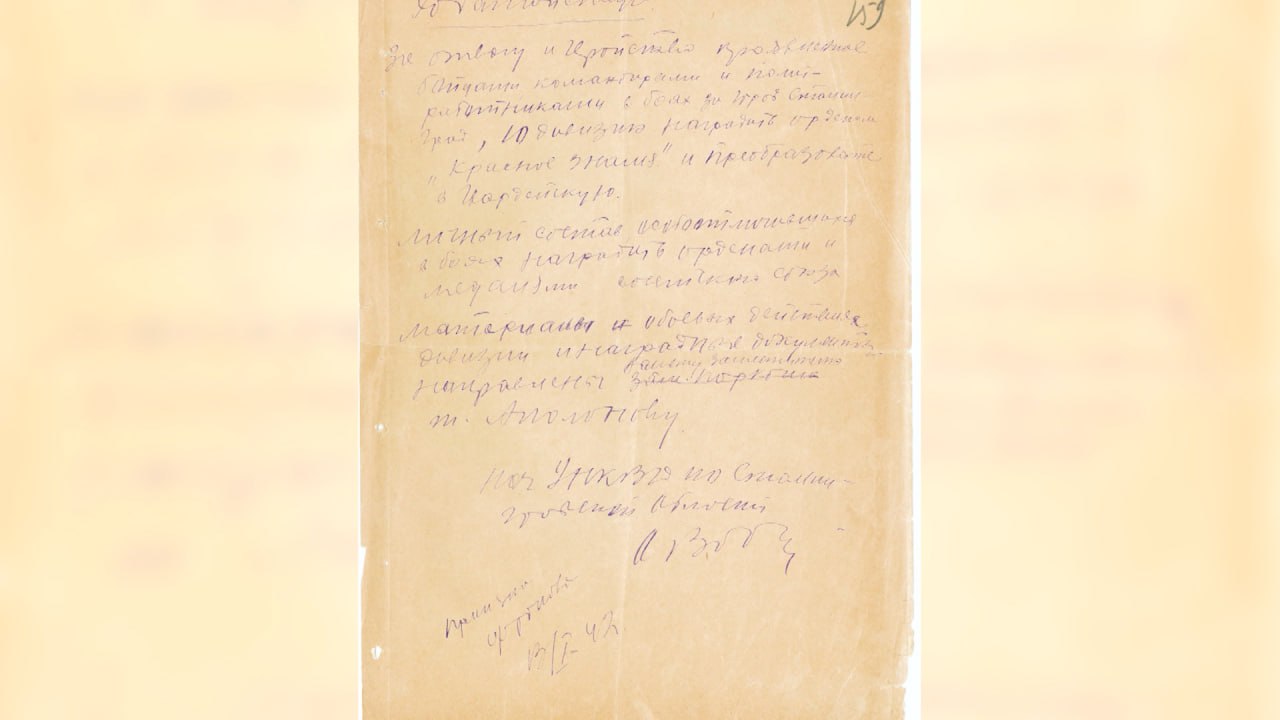 159
За отвагу и геройство проявленное
бойцами командирами и полит-
работниками в боях за город Сталин-
град, 10 дивизию наградить орденом
"Красное знамя" и преобразовать
в Гвардейскую.
Личный состав особоотличившихся
в боях наградить орденами и
медалями советского союза
Материалы о боевых действиях
дивизии и наградные документы
вашему заместителю
направлены
т. Аполонову.
Нач УНКВД по Сталин-
градской Области